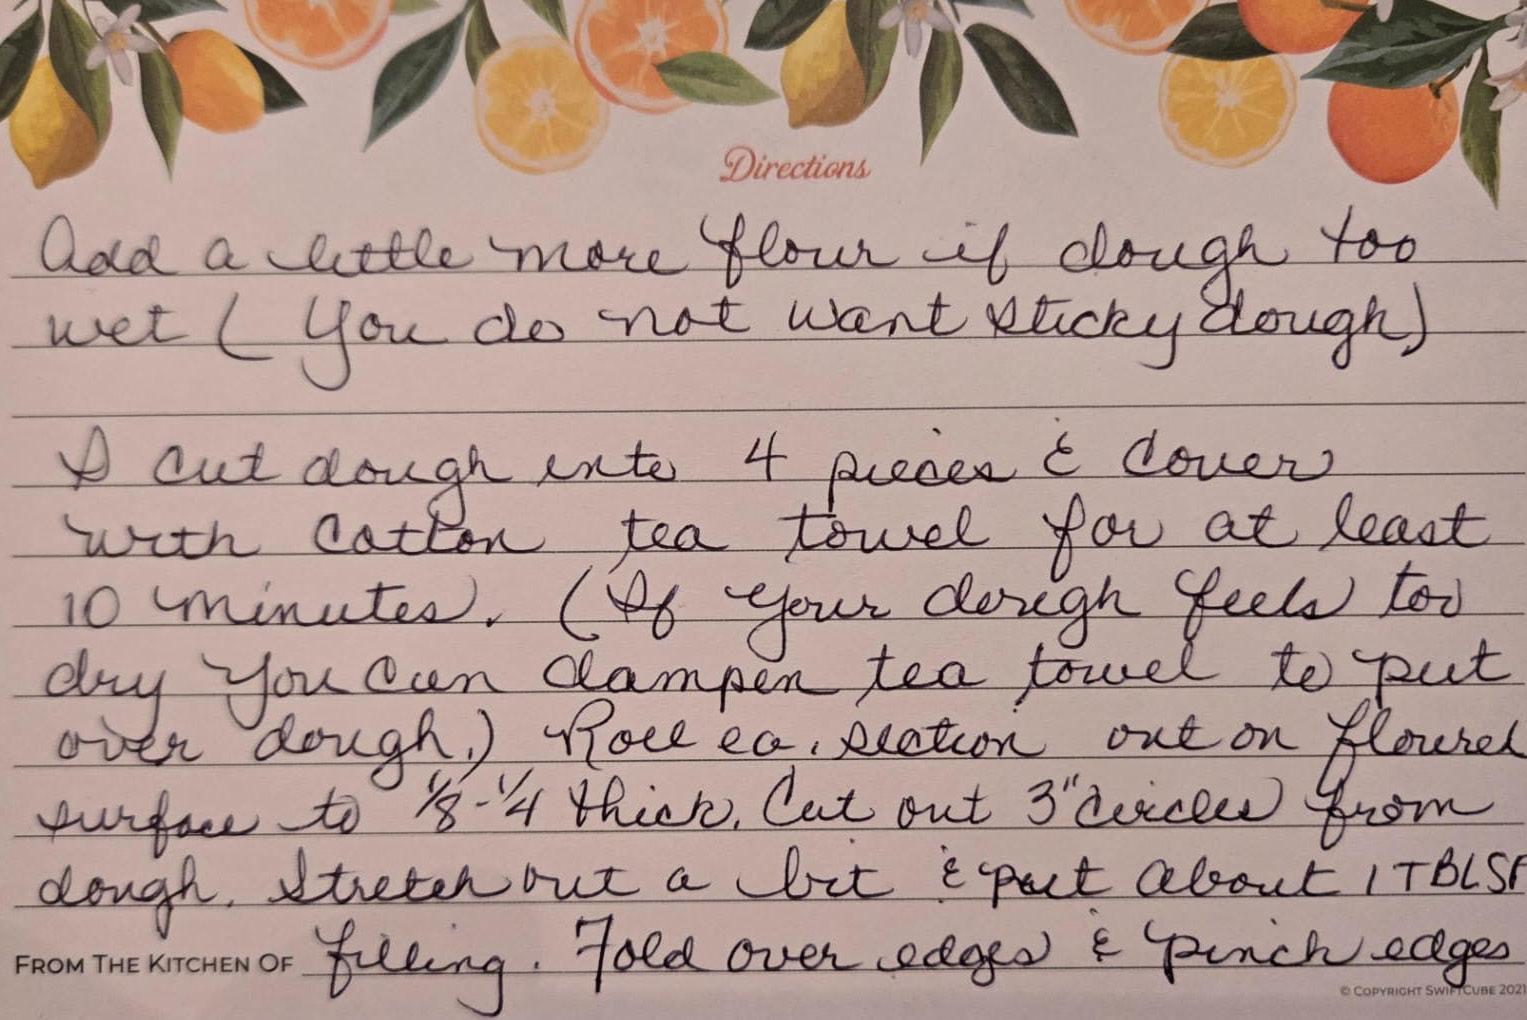 Directions
Add a little more flour if dough too
wet (You do not want sticky dough)
I cut dough into 4 pieces & cover
with cotton tea towel for at least
10 minutes. (If your dough feels too
dry you can dampen tea towel to put
over dough.) Roll ea. section out on floured
surface to 1/8-1/4 thick. Cut out 3" circles from
dough. Stretch out a bit & put about 1 TBLSP
FROM THE KITCHEN OF filling. Fold over edges & pinch edges
© COPYRIGHT SWIFTCUBE 2021